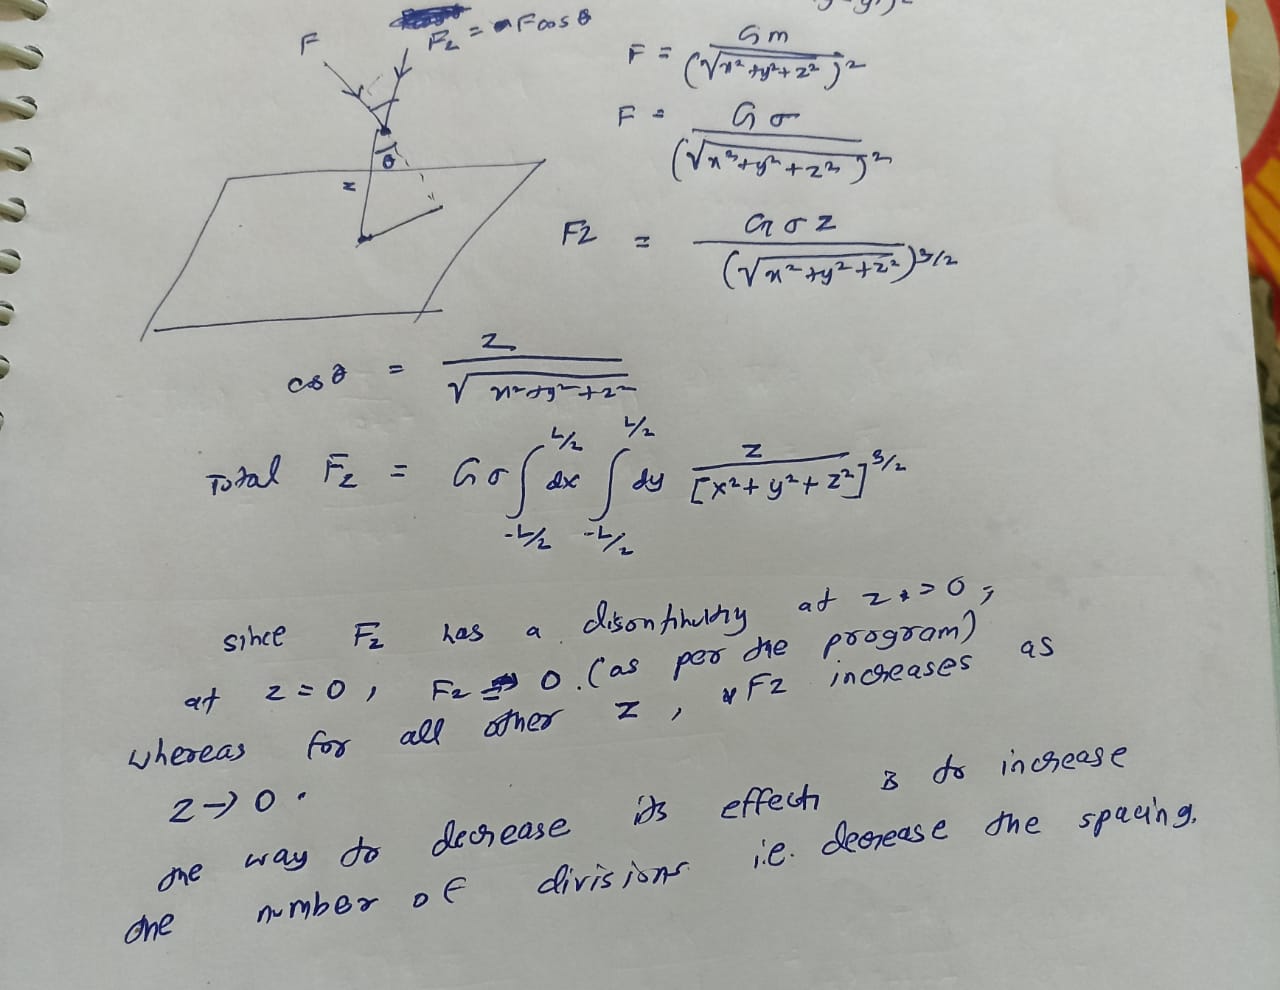 F
F_z = F cos θ
z
θ
F = Gm / (√x²+y²+z²)²
F = Gσ / (√x²+y²+z²)²
Fz = Gσz / (√x²+y²+z²)^3/2
cosθ = z / √x²+y²+z²
Total F_z = Gσ ∫_{-L/2}^{L/2} dx ∫_{-L/2}^{L/2} dy z / [x²+y²+z²]^3/2
since F_z has a disontinuity at z=0,
at z=0, Fz = 0. (as per the program)
whereas for all other z, Fz increases as
z→0.
one way to decrease its effect is to increase
the number of divisions i.e. decrease the spacing.